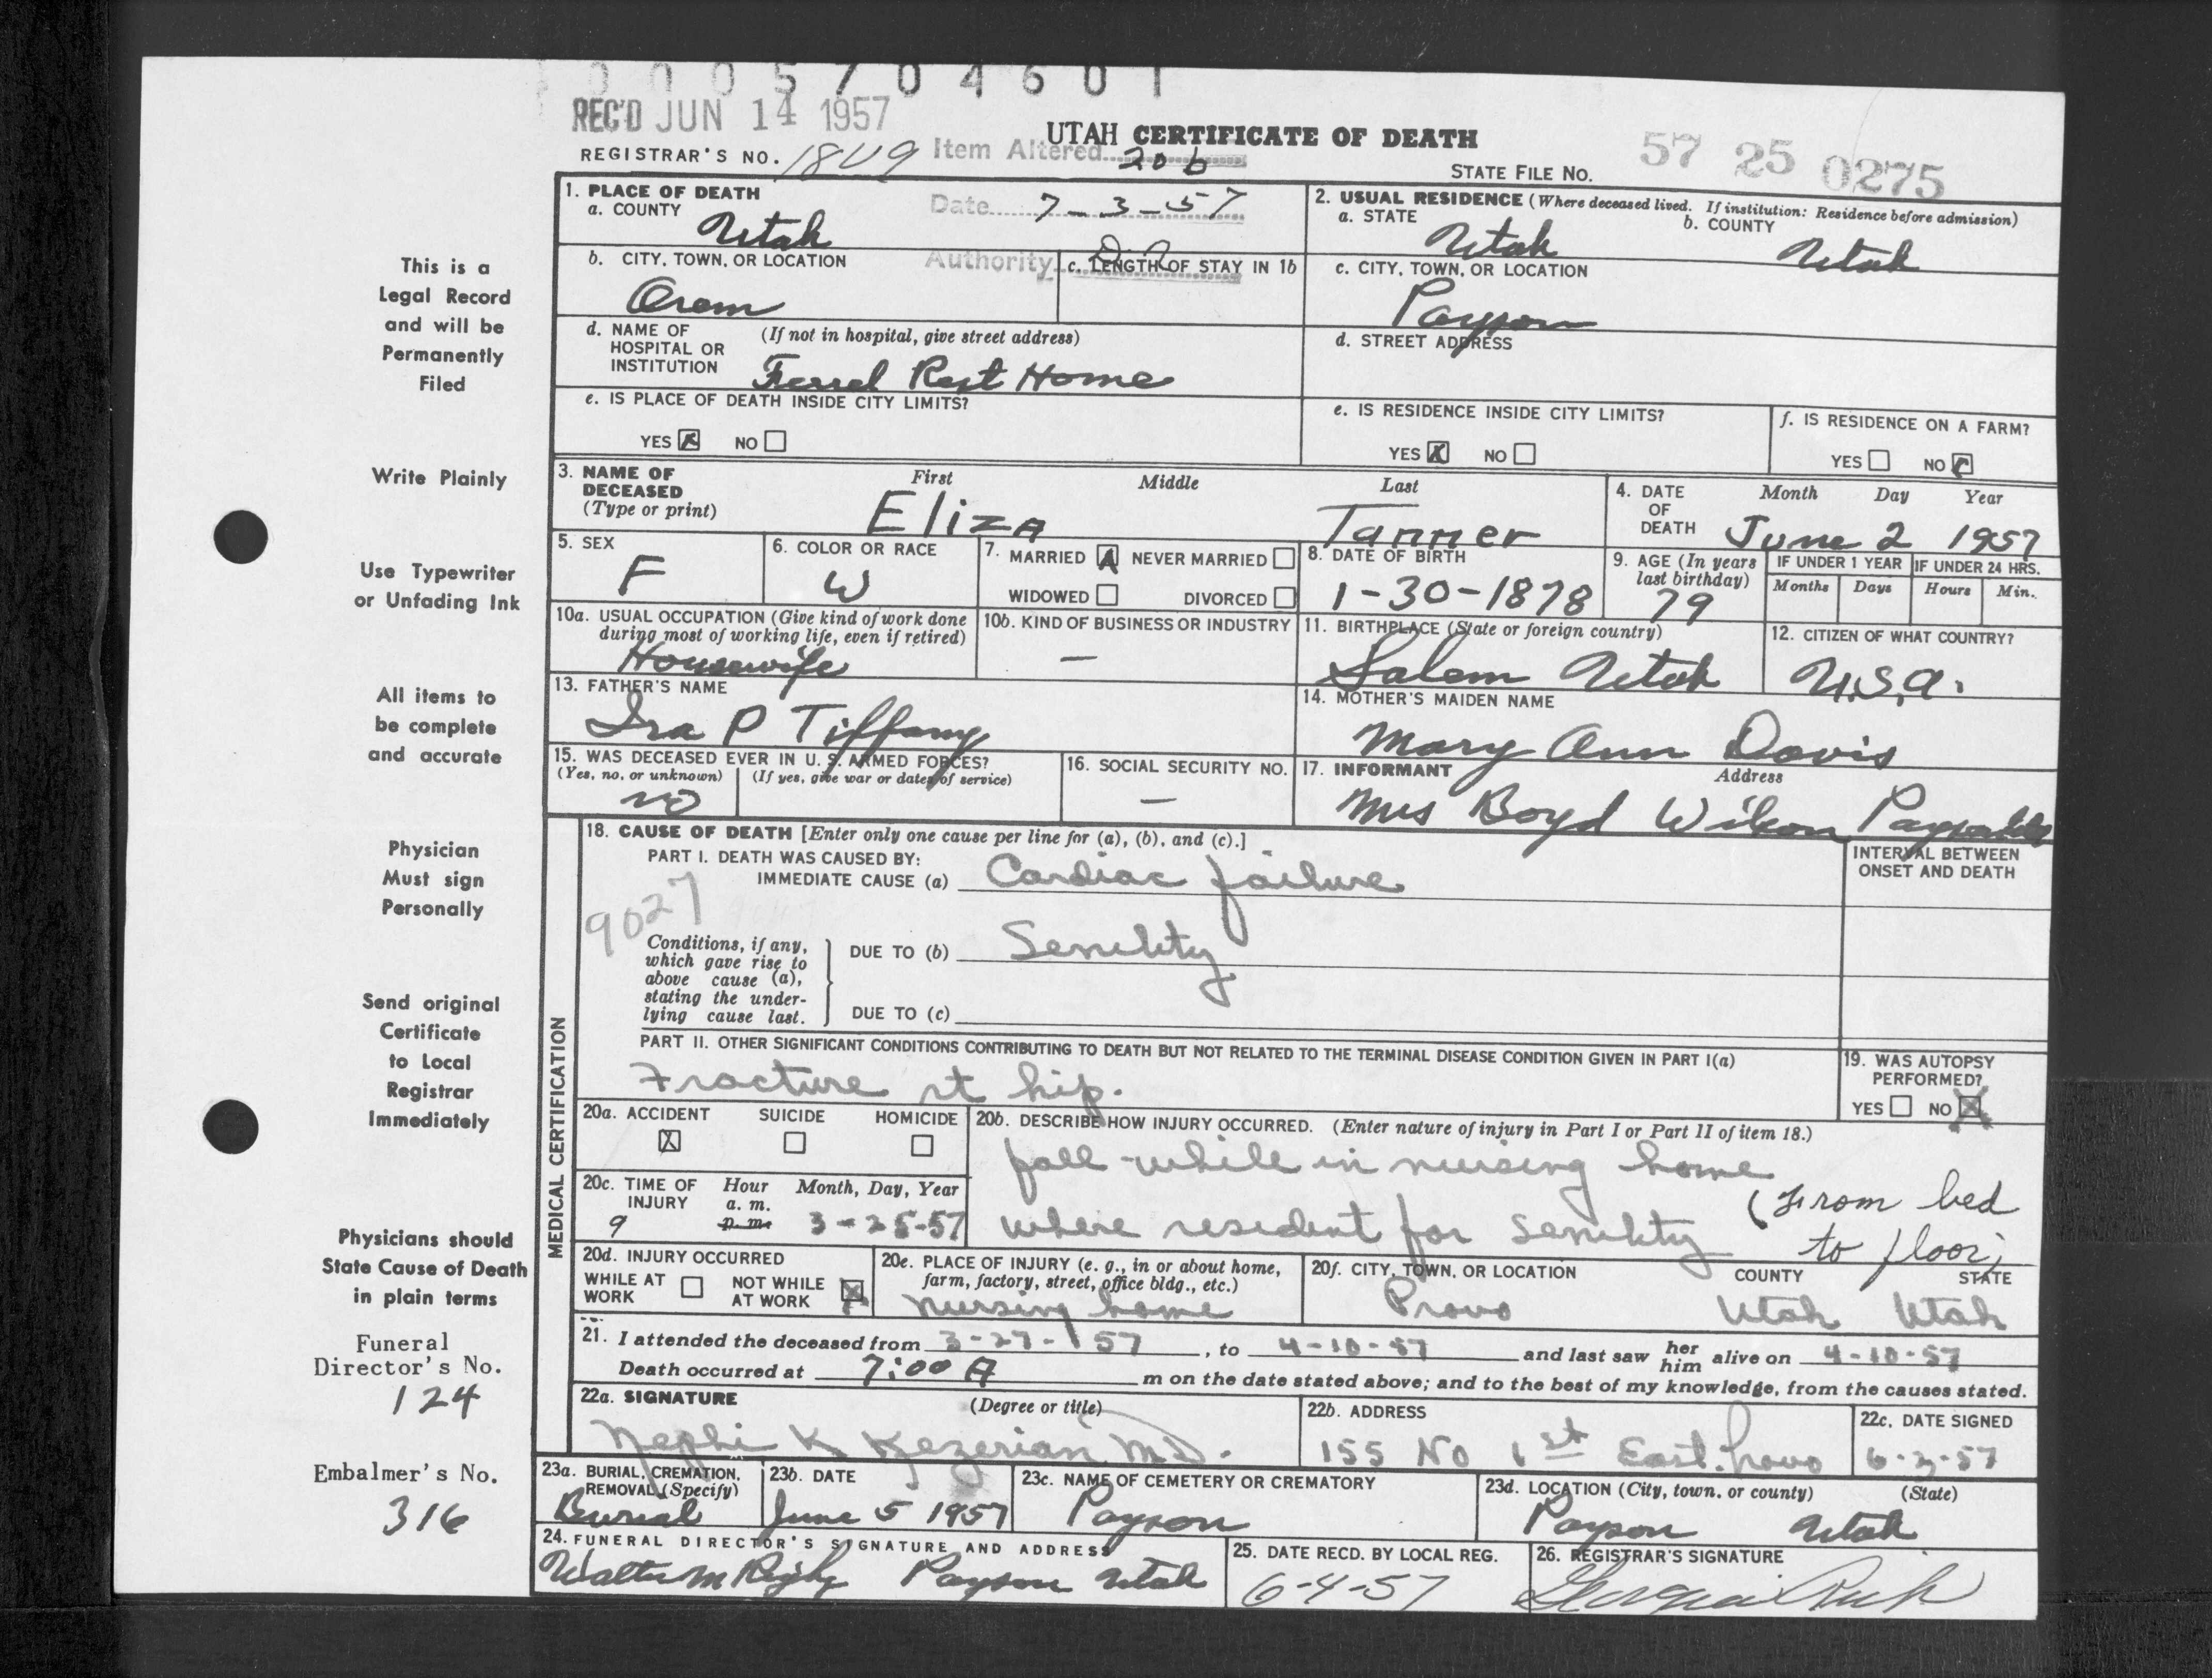 0005704601
REC'D JUN 14 1957
UTAH CERTIFICATE OF DEATH
REGISTRAR'S NO. 1849 Item Altered 20b
STATE FILE NO. 57 25 0275
1. PLACE OF DEATH
a. COUNTY Utah
Date 7-3-57
2. USUAL RESIDENCE (Where deceased lived. If institution: Residence before admission)
a. STATE Utah b. COUNTY Utah
b. CITY, TOWN, OR LOCATION Orem
Authority
c. LENGTH OF STAY IN 1b
c. CITY, TOWN, OR LOCATION Payson
d. NAME OF HOSPITAL OR INSTITUTION (If not in hospital, give street address) Ferrel Rest Home
d. STREET ADDRESS
e. IS PLACE OF DEATH INSIDE CITY LIMITS?
YES X NO
e. IS RESIDENCE INSIDE CITY LIMITS?
YES X NO
f. IS RESIDENCE ON A FARM?
YES NO
3. NAME OF DECEASED (Type or print)
First Middle Last
Eliza Tanner
4. DATE OF DEATH Month Day Year
June 2 1957
5. SEX F
6. COLOR OR RACE W
7. MARRIED NEVER MARRIED
WIDOWED DIVORCED
8. DATE OF BIRTH 1-30-1878
9. AGE (In years last birthday) 79
IF UNDER 1 YEAR Months Days
IF UNDER 24 HRS. Hours Min.
10a. USUAL OCCUPATION (Give kind of work done during most of working life, even if retired) Housewife
10b. KIND OF BUSINESS OR INDUSTRY —
11. BIRTHPLACE (State or foreign country) Salem Utah
12. CITIZEN OF WHAT COUNTRY? U.S.A.
13. FATHER'S NAME Ira P Tiffany
14. MOTHER'S MAIDEN NAME Mary Ann Davis
15. WAS DECEASED EVER IN U. S. ARMED FORCES?
(Yes, no, or unknown) (If yes, give war or dates of service)
no
16. SOCIAL SECURITY NO. —
17. INFORMANT Address
Mrs Boyd Wilson
MEDICAL CERTIFICATION
18. CAUSE OF DEATH [Enter only one cause per line for (a), (b), and (c).]
PART I. DEATH WAS CAUSED BY:
IMMEDIATE CAUSE (a) Cardiac failure
INTERVAL BETWEEN ONSET AND DEATH
9027
Conditions, if any, which gave rise to above cause (a), stating the underlying cause last.
DUE TO (b) Senility
DUE TO (c)
PART II. OTHER SIGNIFICANT CONDITIONS CONTRIBUTING TO DEATH BUT NOT RELATED TO THE TERMINAL DISEASE CONDITION GIVEN IN PART I(a)
Fracture rt hip.
19. WAS AUTOPSY PERFORMED?
YES NO X
20a. ACCIDENT SUICIDE HOMICIDE
X
20b. DESCRIBE HOW INJURY OCCURRED. (Enter nature of injury in Part I or Part II of item 18.)
fall while in nursing home
where resident for senility
(From bed
to floor)
20c. TIME OF INJURY Hour Month, Day, Year
a. m.
9 p. m. 3-25-57
20d. INJURY OCCURRED
WHILE AT WORK NOT WHILE AT WORK X
20e. PLACE OF INJURY (e. g., in or about home, farm, factory, street, office bldg., etc.)
nursing home
20f. CITY, TOWN, OR LOCATION COUNTY STATE
Provo Utah Utah
21. I attended the deceased from 3-27-57, to 4-10-57 and last saw her him alive on 4-10-57
Death occurred at 7:00 A m on the date stated above; and to the best of my knowledge, from the causes stated.
22a. SIGNATURE (Degree or title)
Nephi K Kezerian M.D.
22b. ADDRESS
155 No 1st East. Provo
22c. DATE SIGNED
6-3-57
23a. BURIAL, CREMATION, REMOVAL (Specify) Burial
23b. DATE June 5 1957
23c. NAME OF CEMETERY OR CREMATORY Payson
23d. LOCATION (City, town, or county) (State)
Payson Utah
24. FUNERAL DIRECTOR'S SIGNATURE AND ADDRESS
Walter M Rigby Payson Utah
25. DATE RECD. BY LOCAL REG.
6-4-57
26. REGISTRAR'S SIGNATURE
This is a
Legal Record
and will be
Permanently
Filed
Write Plainly
Use Typewriter
or Unfading Ink
All items to
be complete
and accurate
Physician
Must sign
Personally
Send original
Certificate
to Local
Registrar
Immediately
Physicians should
State Cause of Death
in plain terms
Funeral
Director's No.
124
Embalmer's No.
316